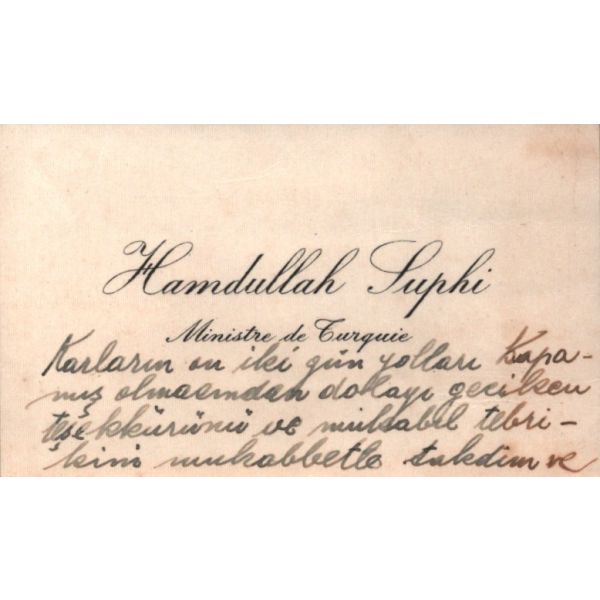 Hamdullah Suphi
Ministre de Turquie
Karların on iki gün yolları kapa-
mış olmasından dolayı geciken
teşekkürünü ve mukabil tebri-
kini muhabbetle takdim ve